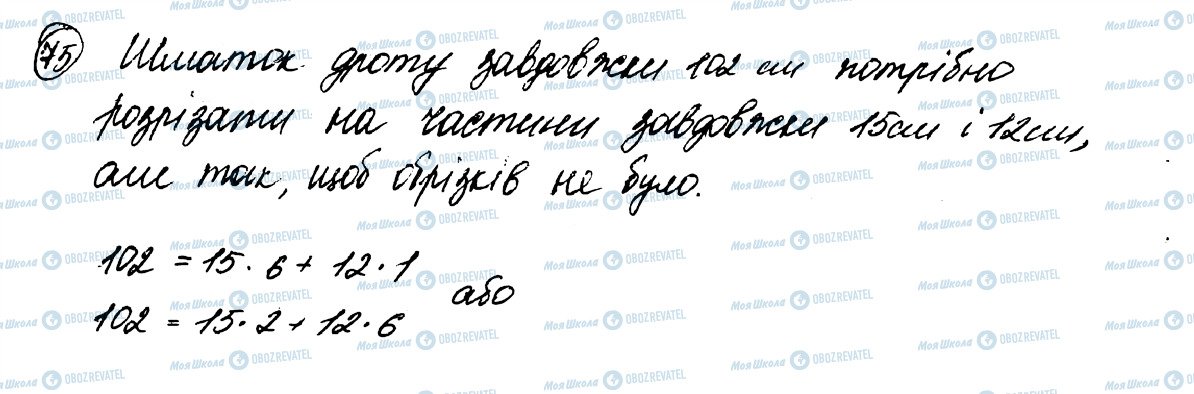 75 Шматок дроту завдовжки 102 см потрібно
розрізати на частини завдовжки 15см і 12см,
але так, щоб обрізків не було.
102 = 15 · 6 + 12 · 1
або
102 = 15 · 2 + 12 · 6